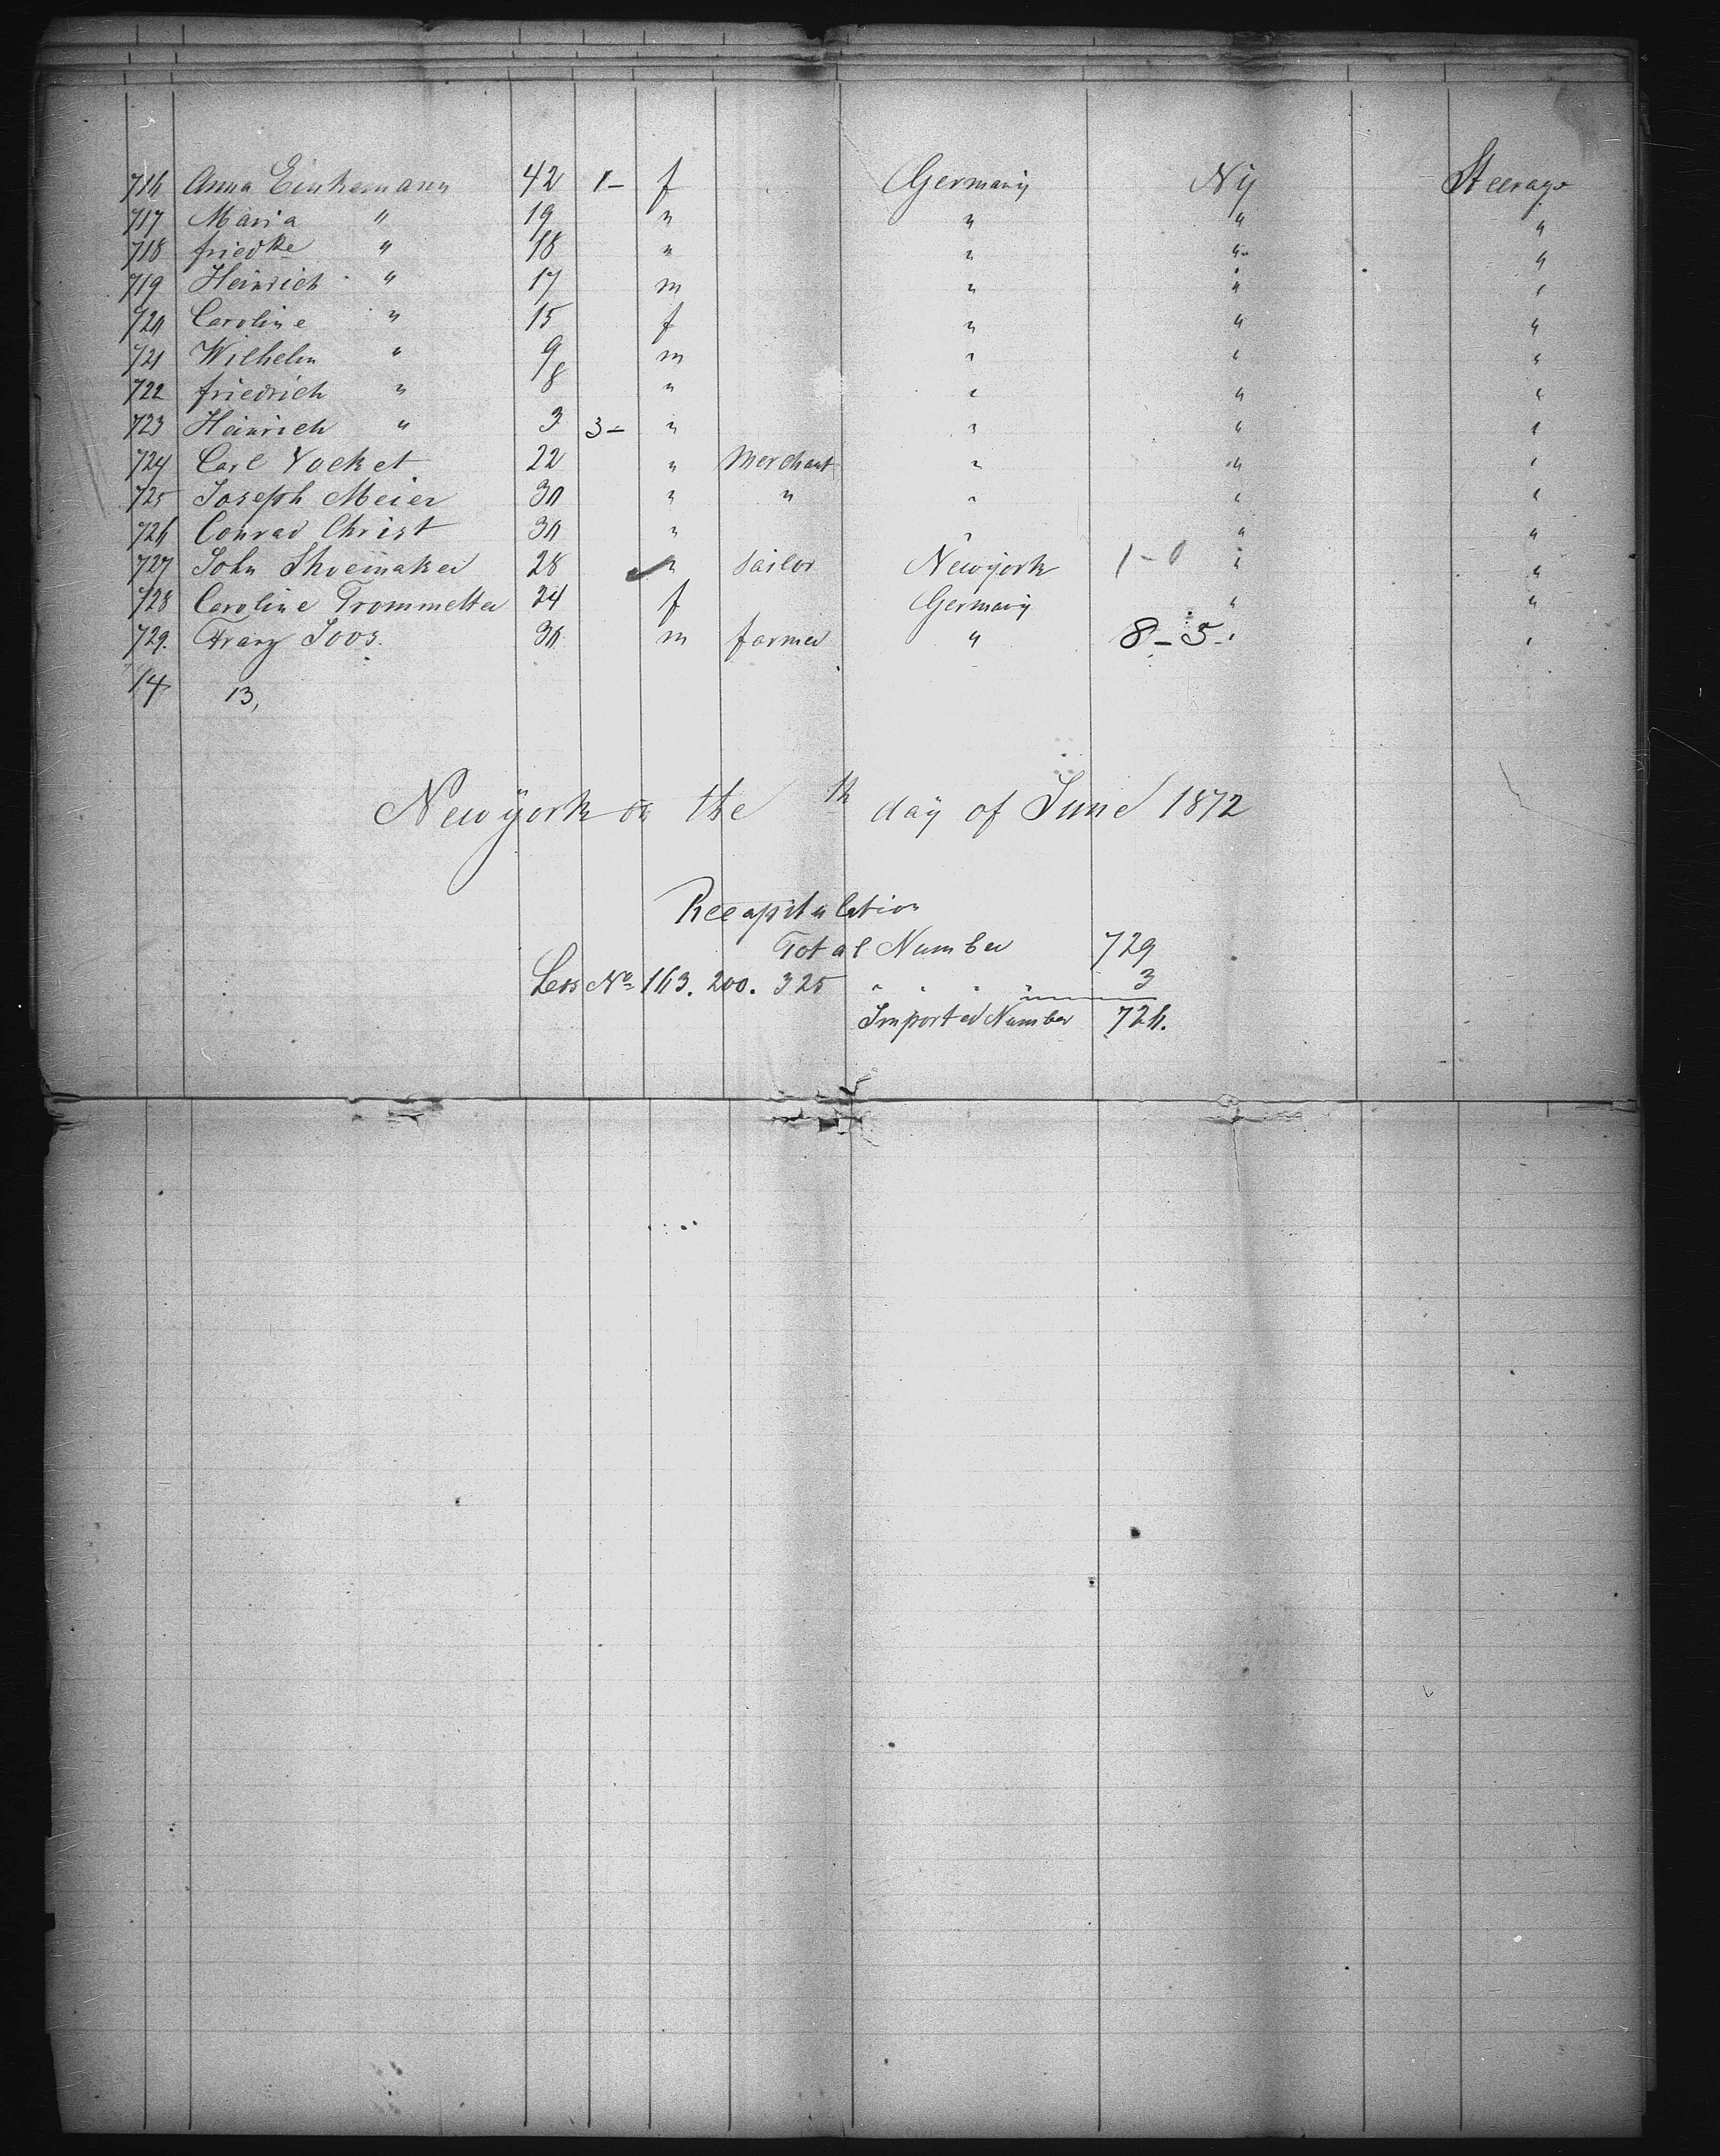 716 Anna Einkemann 42 1- f Germany Ny Steerage
717 Maria " 19 " " " "
718 friedke " 18 " " " "
719 Heinrich " 17 m " " "
720 Caroline " 15 f " " "
721 Wilhelm " 9 m " " "
722 friedrich " 8 " " " "
723 Heinrich " 3 3- " " " "
724 Carl Vocket 22 " Merchant " " "
725 Joseph Meier 30 " " " " "
726 Conrad Christ 30 " " " "
727 John Shoemaker 28 ✓ " Sailor Newyork 1-0 " "
728 Caroline Trommetter 24 f Germany " "
729. Franz Joos. 30 m farmer " 8-5- " "
14 13,
Newyork on the th day of June 1872
Recapitulation
Total Number 729
Less No 163. 200. 325 " " " " 3
Imported Number 726.